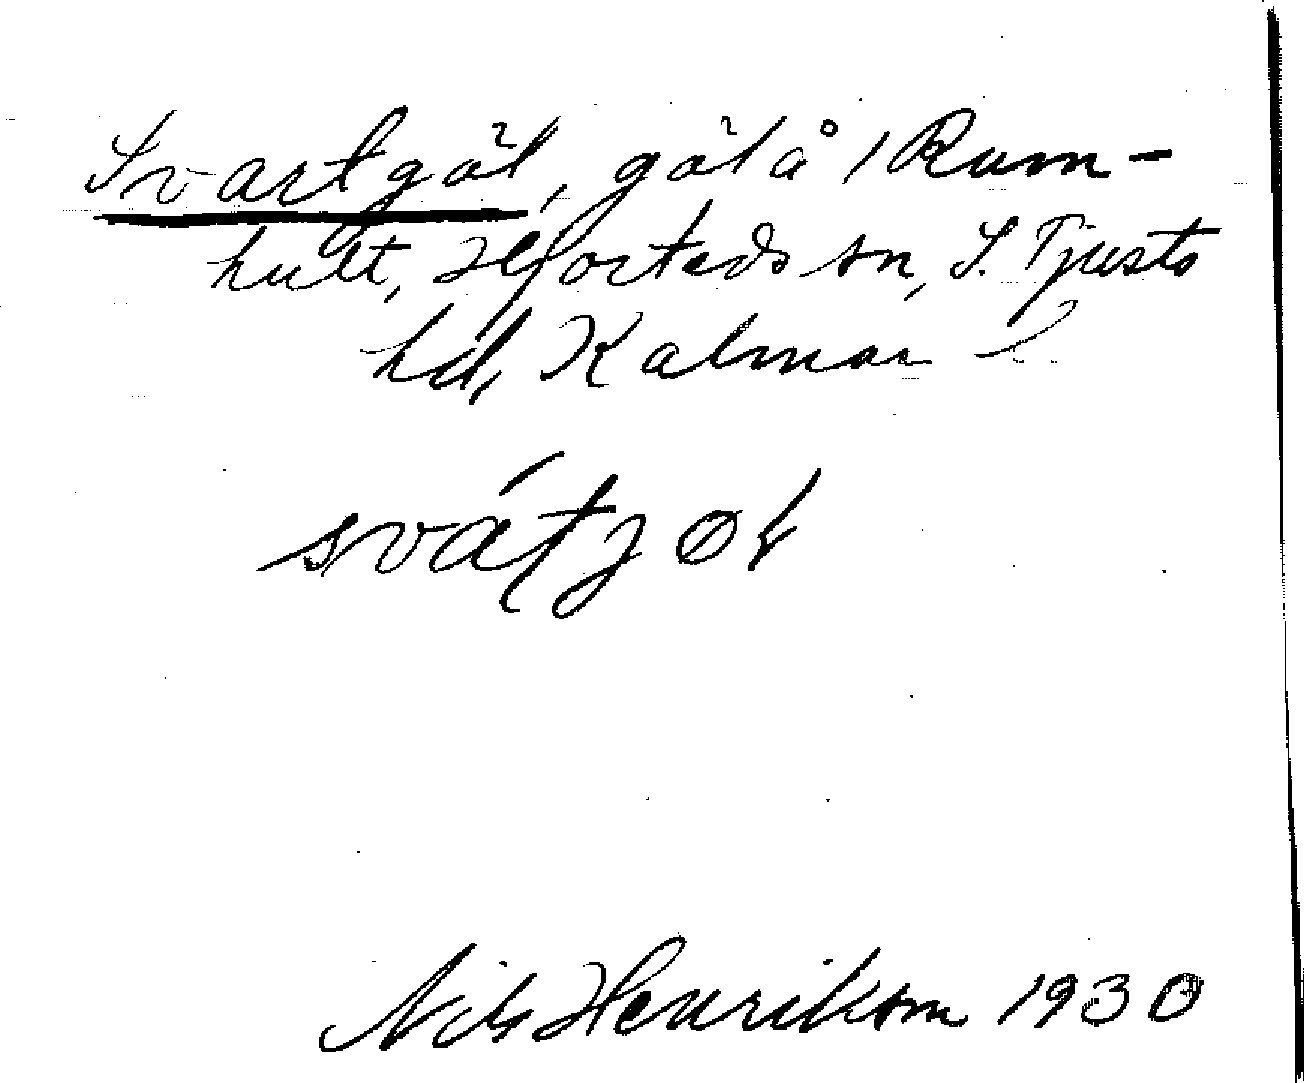 Svartgöl, göl å 1 Rum-
hult, Hjorteds sn, S. Tjusts
hd, Kalmar l.
svátjøl
Nils Henrikson 1930